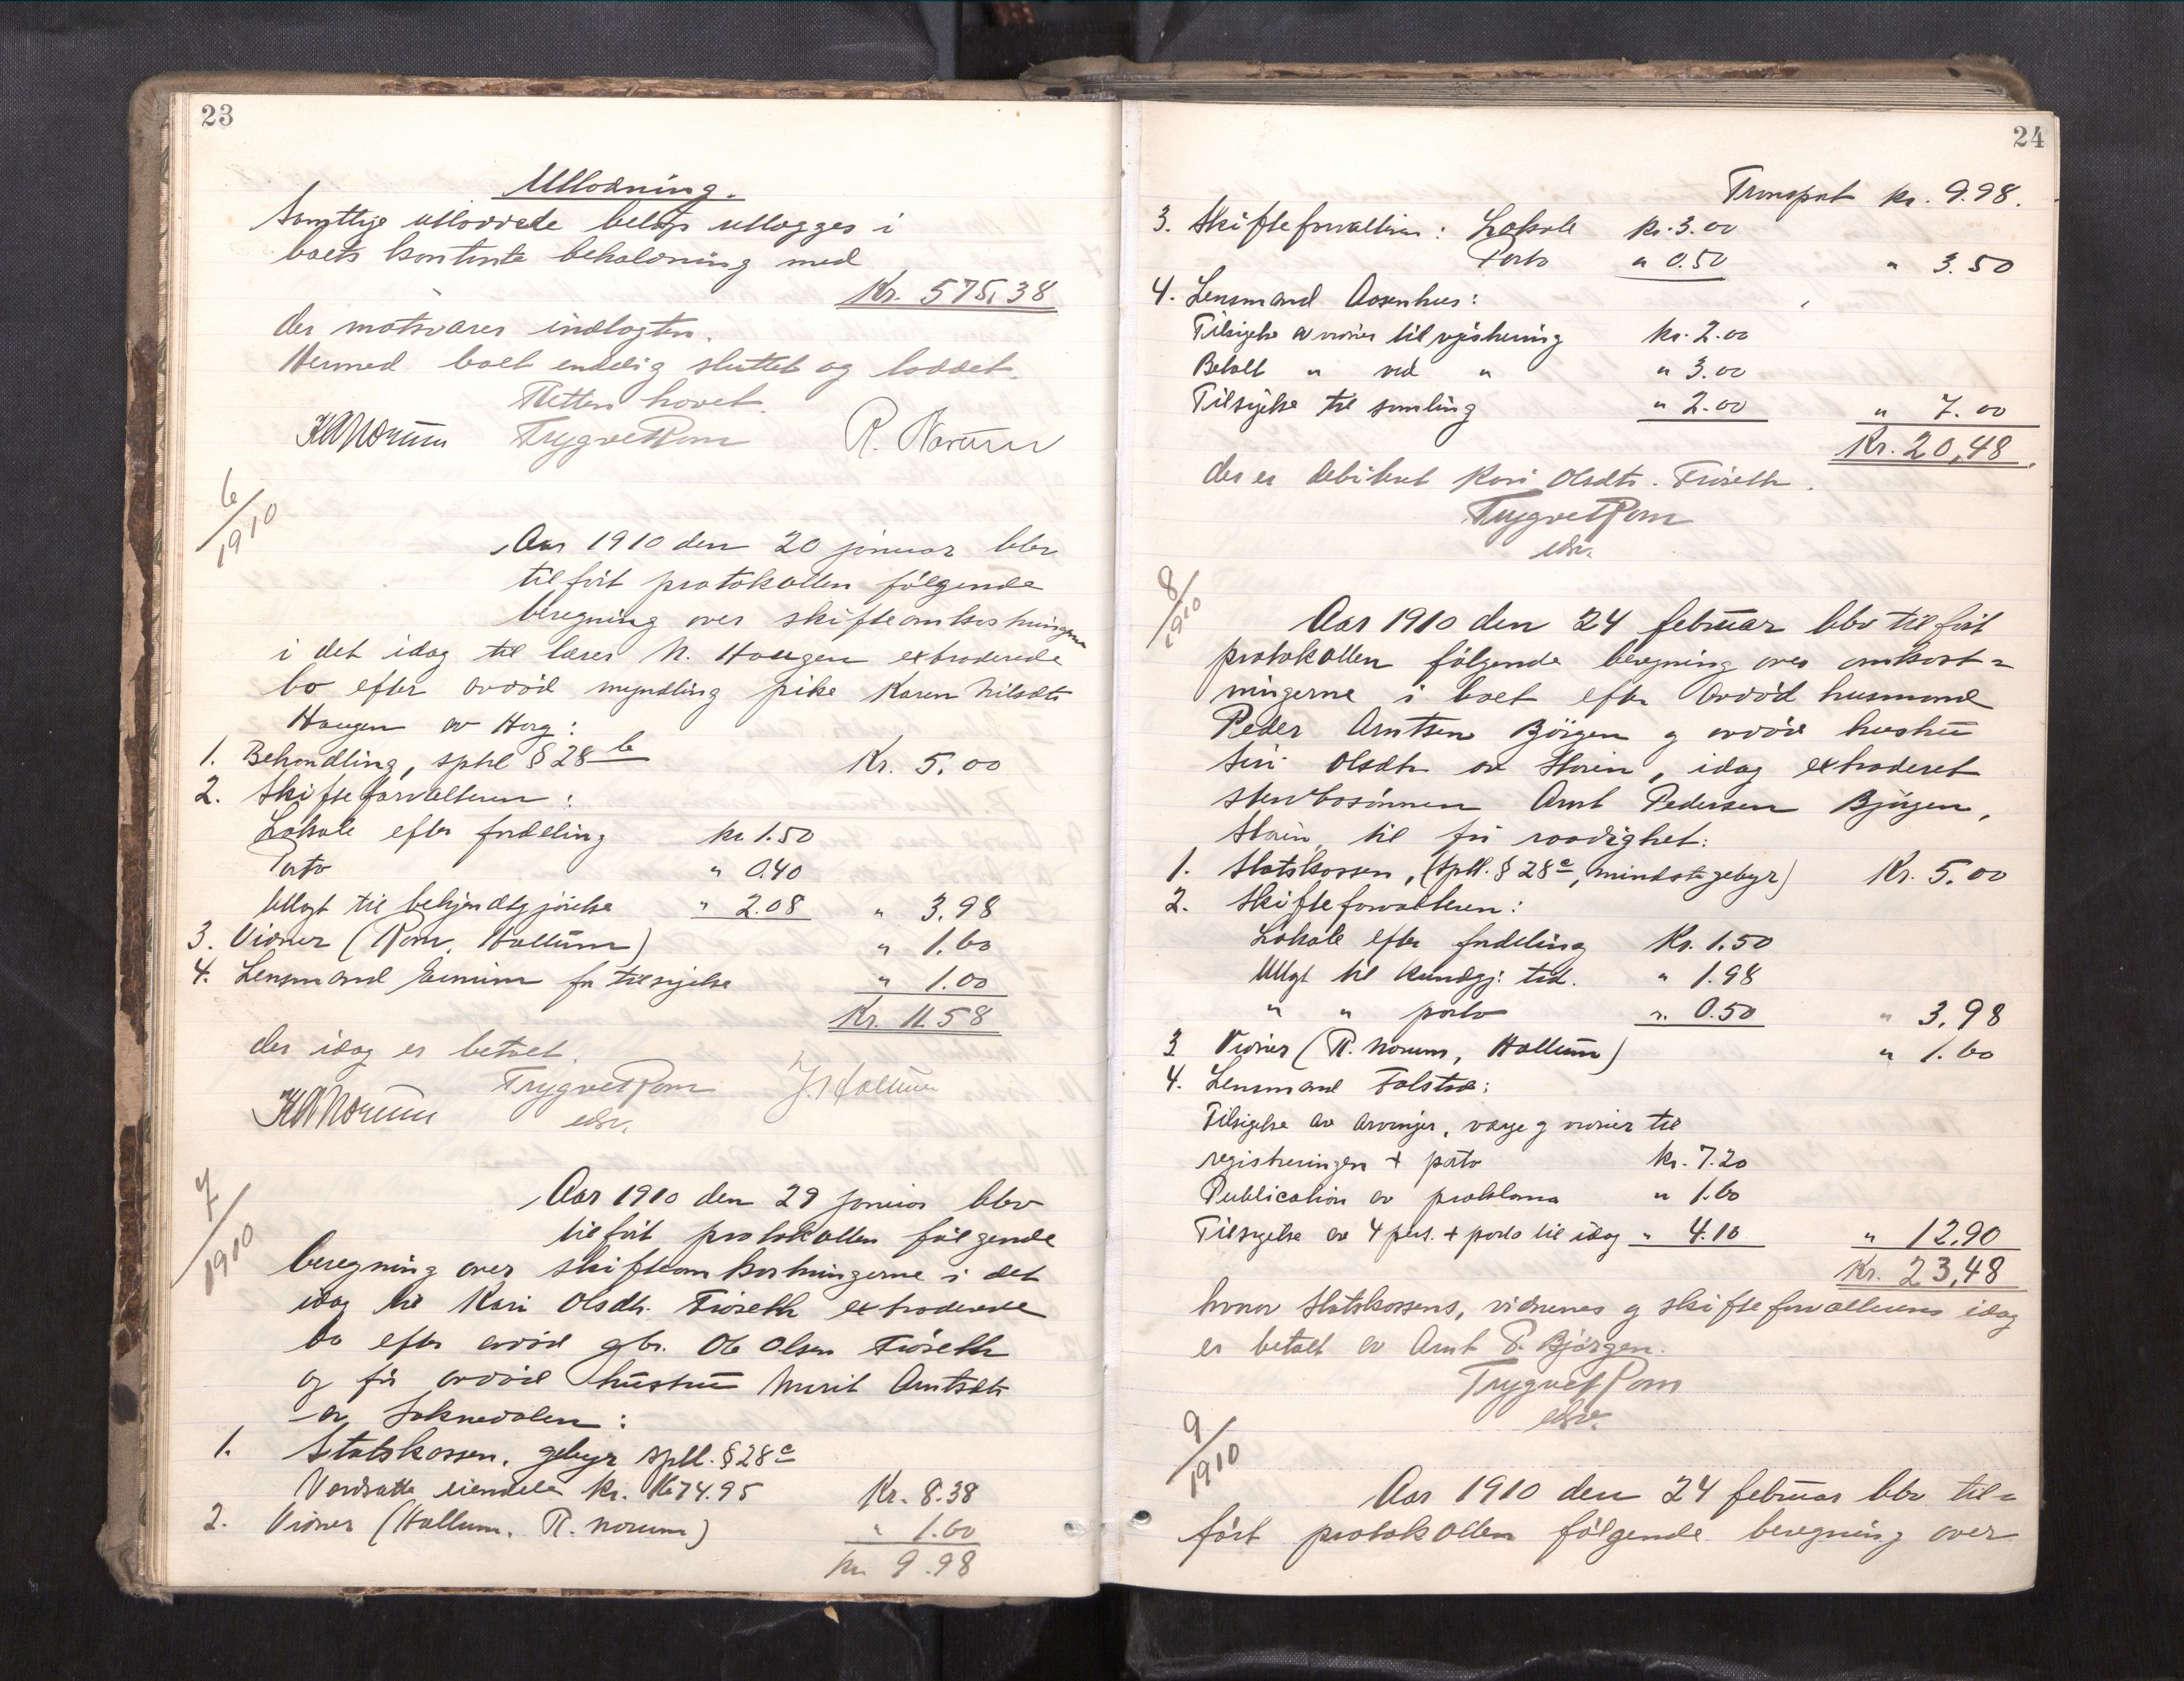 23
Utlodning.
Samtlige utloddede beløp utlægges i
boets kontante beholdning med
Kr. 575,38
der motsvarer indtægten.
Hermed boet endelig sluttet og loddet.
Retten hævet.
Trygve Rom R. Norum
6/1910
Aar 1910 den 20 januar blev
tilført protokollen følgende
beregning over skifteomkostningerne
i det idag til lærer N. Haugen extraderede
bo efter avdød myndling pike Karen Nilsdtr
Haugen av Horg:
1. Behandling, sptl § 28 b Kr. 5.00
2. Skifteforvalteren:
Lokale efter fordeling kr 1.50
Porto " 0.40
Utlagt til bekjendtgjørelse " 2.08 " 3.98
3. Vidner (Rom, Hallum) " 1.60
4. Lensmand for tilsigelse " 1.00
Kr. 11.58
der idag er betalt.
Trygve Rom J. Hallum
edsv.
7/1910
Aar 1910 den 29 januar blev
tilført protokollen følgende
beregning over skifteomkostningerne i det
idag til Kari Olsdtr. Fiøseth extraderede
bo efter avdød gbr. Ole Olsen Fiøseth
og før avdød hustru Marit Arntsdtr
av Soknedalen:
1. Statskassen, gebyr sptl. § 28 c
Værdsatte eiendele kr. 1674.95 Kr. 8.38
2. Vidner (Hallum, R. Norum) " 1.60
kr 9.98
24
Transport kr. 9.98.
3. Skifteforvalteren: Lokale kr. 3.00
Porto " 0.50 " 3.50
4. Lensmand Aasenhus:
Tilsigelse av vidner til registrering kr. 2.00
Betalt " ved " " 3.00
Tilsigelse til samling " 2.00 " 7.00
Kr. 20,48.
der er debitert Kari Olsdtr. Fiøseth.
Trygve Rom
edsv.
8/1910
Aar 1910 den 24 februar blev tilført
protokollen følgende beregning over omkost=
ningerne i boet efter avdød husmand
Peder Arntsen Bjørgen og avdød hustru
Siri Olsdtr av Støren, idag extraderet
stervbosønnen Arnt Pedersen Bjørgen,
Støren, til fri raadighet:
1. Statskassen, (sptl. § 28 c, mindste gebyr) Kr. 5.00
2. Skifteforvalteren:
Lokale efter fordeling Kr. 1.50
Utlagt til Kundgj: tid. " 1.98
" " porto " 0.50 " 3.98
3 Vidner (R. Norum, Hallum) " 1.60
4. Lensmand Folstad:
Tilsigelse av arvinger, værge og vidner til
registreringen + porto kr. 7.20
Publication av proklama " 1.60
Tilsigelse av 4 pers. + porto til idag " 4.10 " 12.90
Kr. 23,48
hvorav Statskassens, vidnernes og skifteforvalterens idag
er betalt av Arnt P. Bjørgen.
Trygve Rom
edsv.
9/1910
Aar 1910 den 24 februar blev til=
ført protokollen følgende beregning over